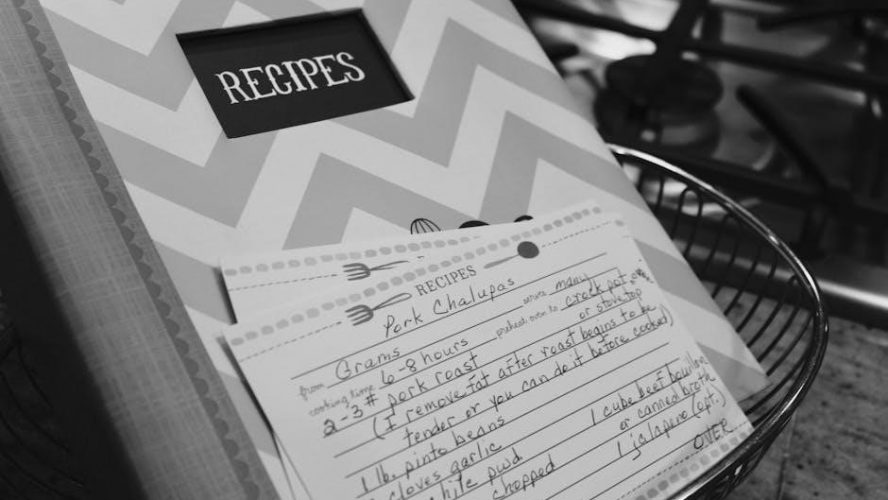 RECIPES
RECIPES
Pork Chalupas
serves many
from Grams preheat oven to crock pot
cooking time 6-8 hours or stovetop
2-3# pork roast
(I remove fat after roast begins to be
tender or you can do it before cooked)
1 lb. pinto beans 1 cube beef bouillon
cloves garlic or canned broth
chile pwd 1 jalapeno (opt.)
chopped OVER